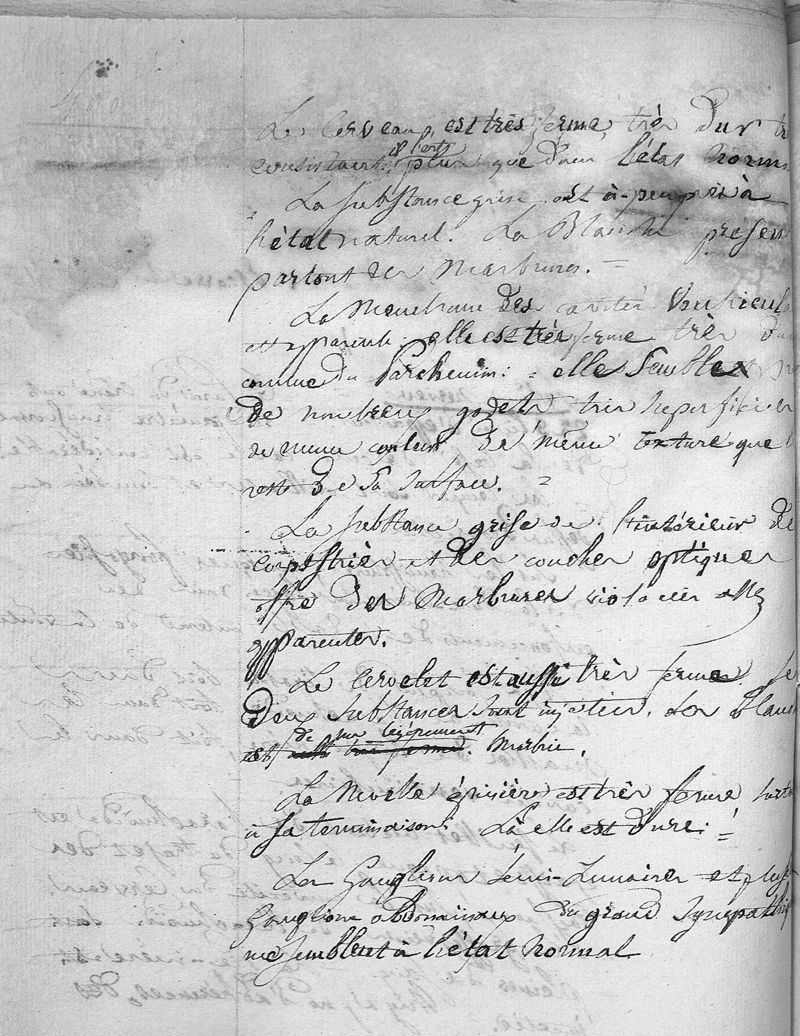 Le cerveau est très ferme, très dur tr
consistant, plus que dans l'état norm
La substance grise est à-peu-près à
l'état naturel. La Blanche présen
partout des Marbrures. =
La Membrane des cavités Ventricul
est apparente. elle est très ferme très du
comme du Parchemin. = elle semble
de nombreux godets très superficiel
de même couleur, de même texture que
reste de sa surface. =
La substance grise de l'intérieur de
corps striés et des couches optiques
offre des Marbrures violacées assez
apparentes.
Le cervelet est aussi très ferme. Se
deux substances sont injectées. La Blanc
est légèrement Marbrée.
La Moelle épinière est très ferme surt
à sa terminaison. Là elle est dure. =
Les Ganglions semi-Lunaires et plus
Ganglions abdominaux du grand Sympathiq
me semblent à l'état normal